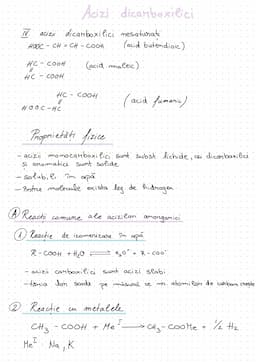 Acizi dicarboxilici
IV acizi dicarboxilici nesaturați
HOOC - CH = CH - COOH (acid butendioic)
HC - COOH (acid maleic)
||
HC - COOH
HC - COOH
|| (acid fumaric)
HOOC - HC
Proprietăți fizice
- acizii monocarboxilici sunt subst. lichide, cei dicarboxilici
și aromatici sunt solide
- solubili în apă
- între molecule există leg. de hidrogen
A Reacții comune ale acizilor anorganici
1 Reacție de ionizare în apă
R - COOH + H₂O ⇌ H₃O⁺ + R - COO⁻
- acizii carboxilici sunt acizi slabi
- tăria lor scade pe măsură ce nr. atomilor de carbon crește
2 Reacție cu metalele
CH₃ - COOH + Me^I → CH₃ - COOMe + 1/2 H₂
Me^I: Na, K